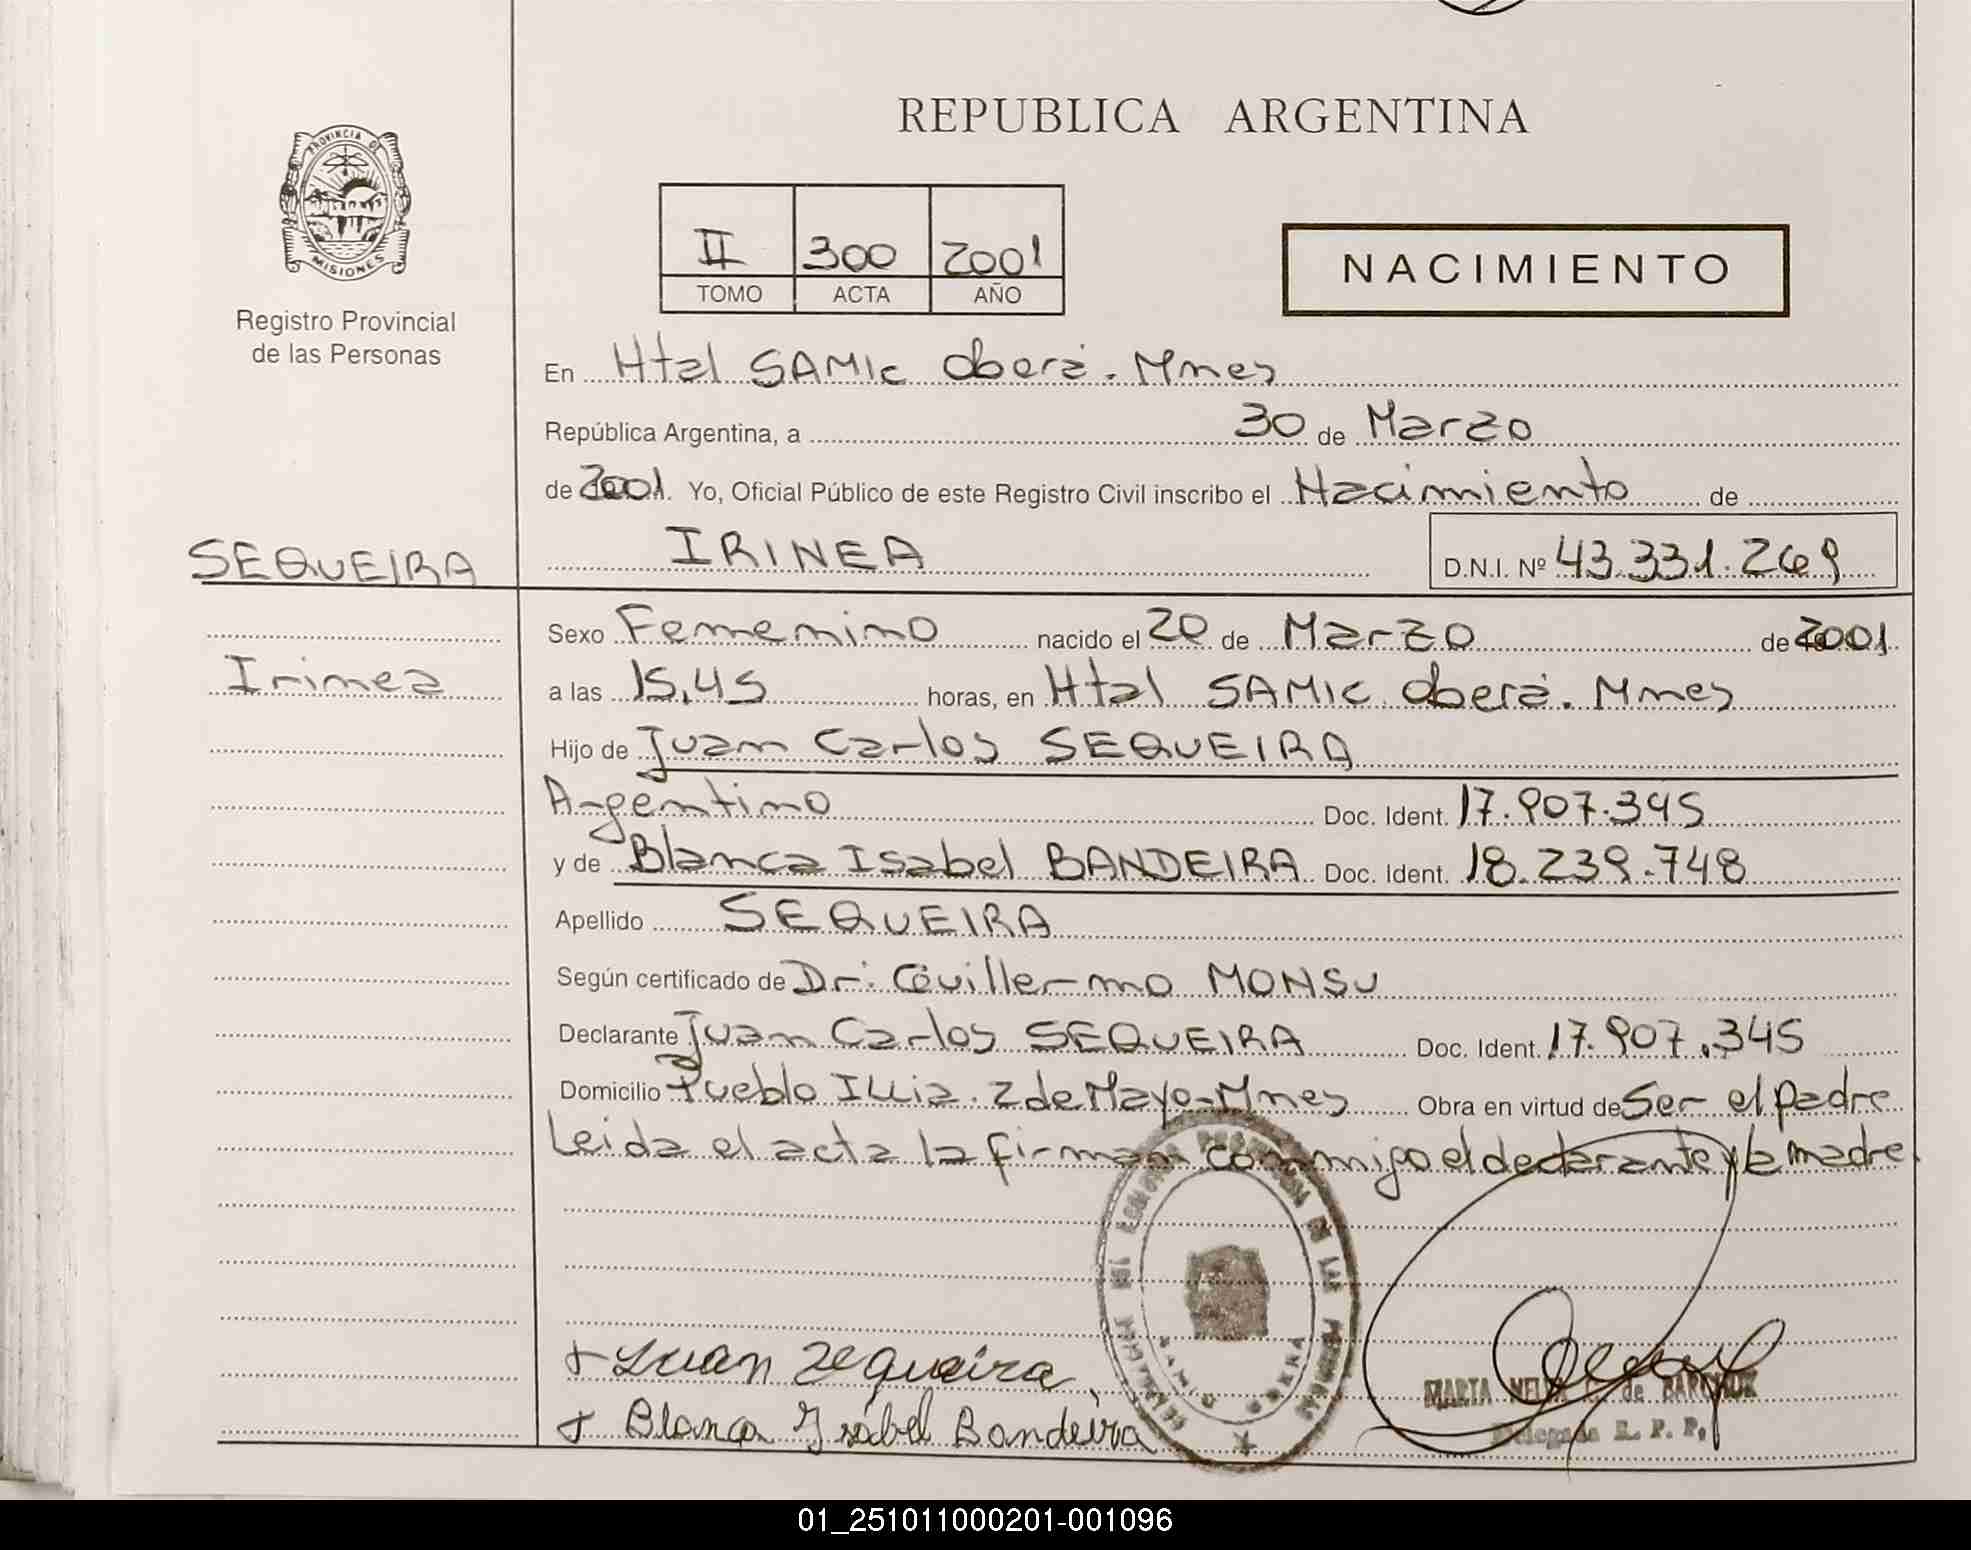 REPUBLICA ARGENTINA
PROVINCIA DE
MISIONES
Registro Provincial
de las Personas
II 300 2001
TOMO ACTA AÑO
NACIMIENTO
En Htal SAMIC Oberá. Mnes
República Argentina, a 30 de Marzo
de 2001. Yo, Oficial Público de este Registro Civil inscribo el Nacimiento de
SEQUEIRA IRINEA D.N.I. Nº 43.331.269
Sexo Femenino nacido el 20 de Marzo de 2001
Irinea a las 15,45 horas, en Htal SAMIC Oberá. Mnes
Hijo de Juan Carlos SEQUEIRA
Argentino Doc. Ident. 17.907.345
y de Blanca Isabel BANDEIRA Doc. Ident. 18.239.748
Apellido SEQUEIRA
Según certificado de Dr. Guillermo MONSU
Declarante Juan Carlos SEQUEIRA Doc. Ident. 17.907.345
Domicilio Pueblo Illia. 2 de Mayo-Mnes Obra en virtud de Ser el padre
Leida el acta la firman conmigo el declarante y la madre
DE LAS PERSONAS
+ Juan Sequeira
MARTA de
+ Blanca Ysabel Bandeira
Delegada R. P. P.
01_251011000201-001096